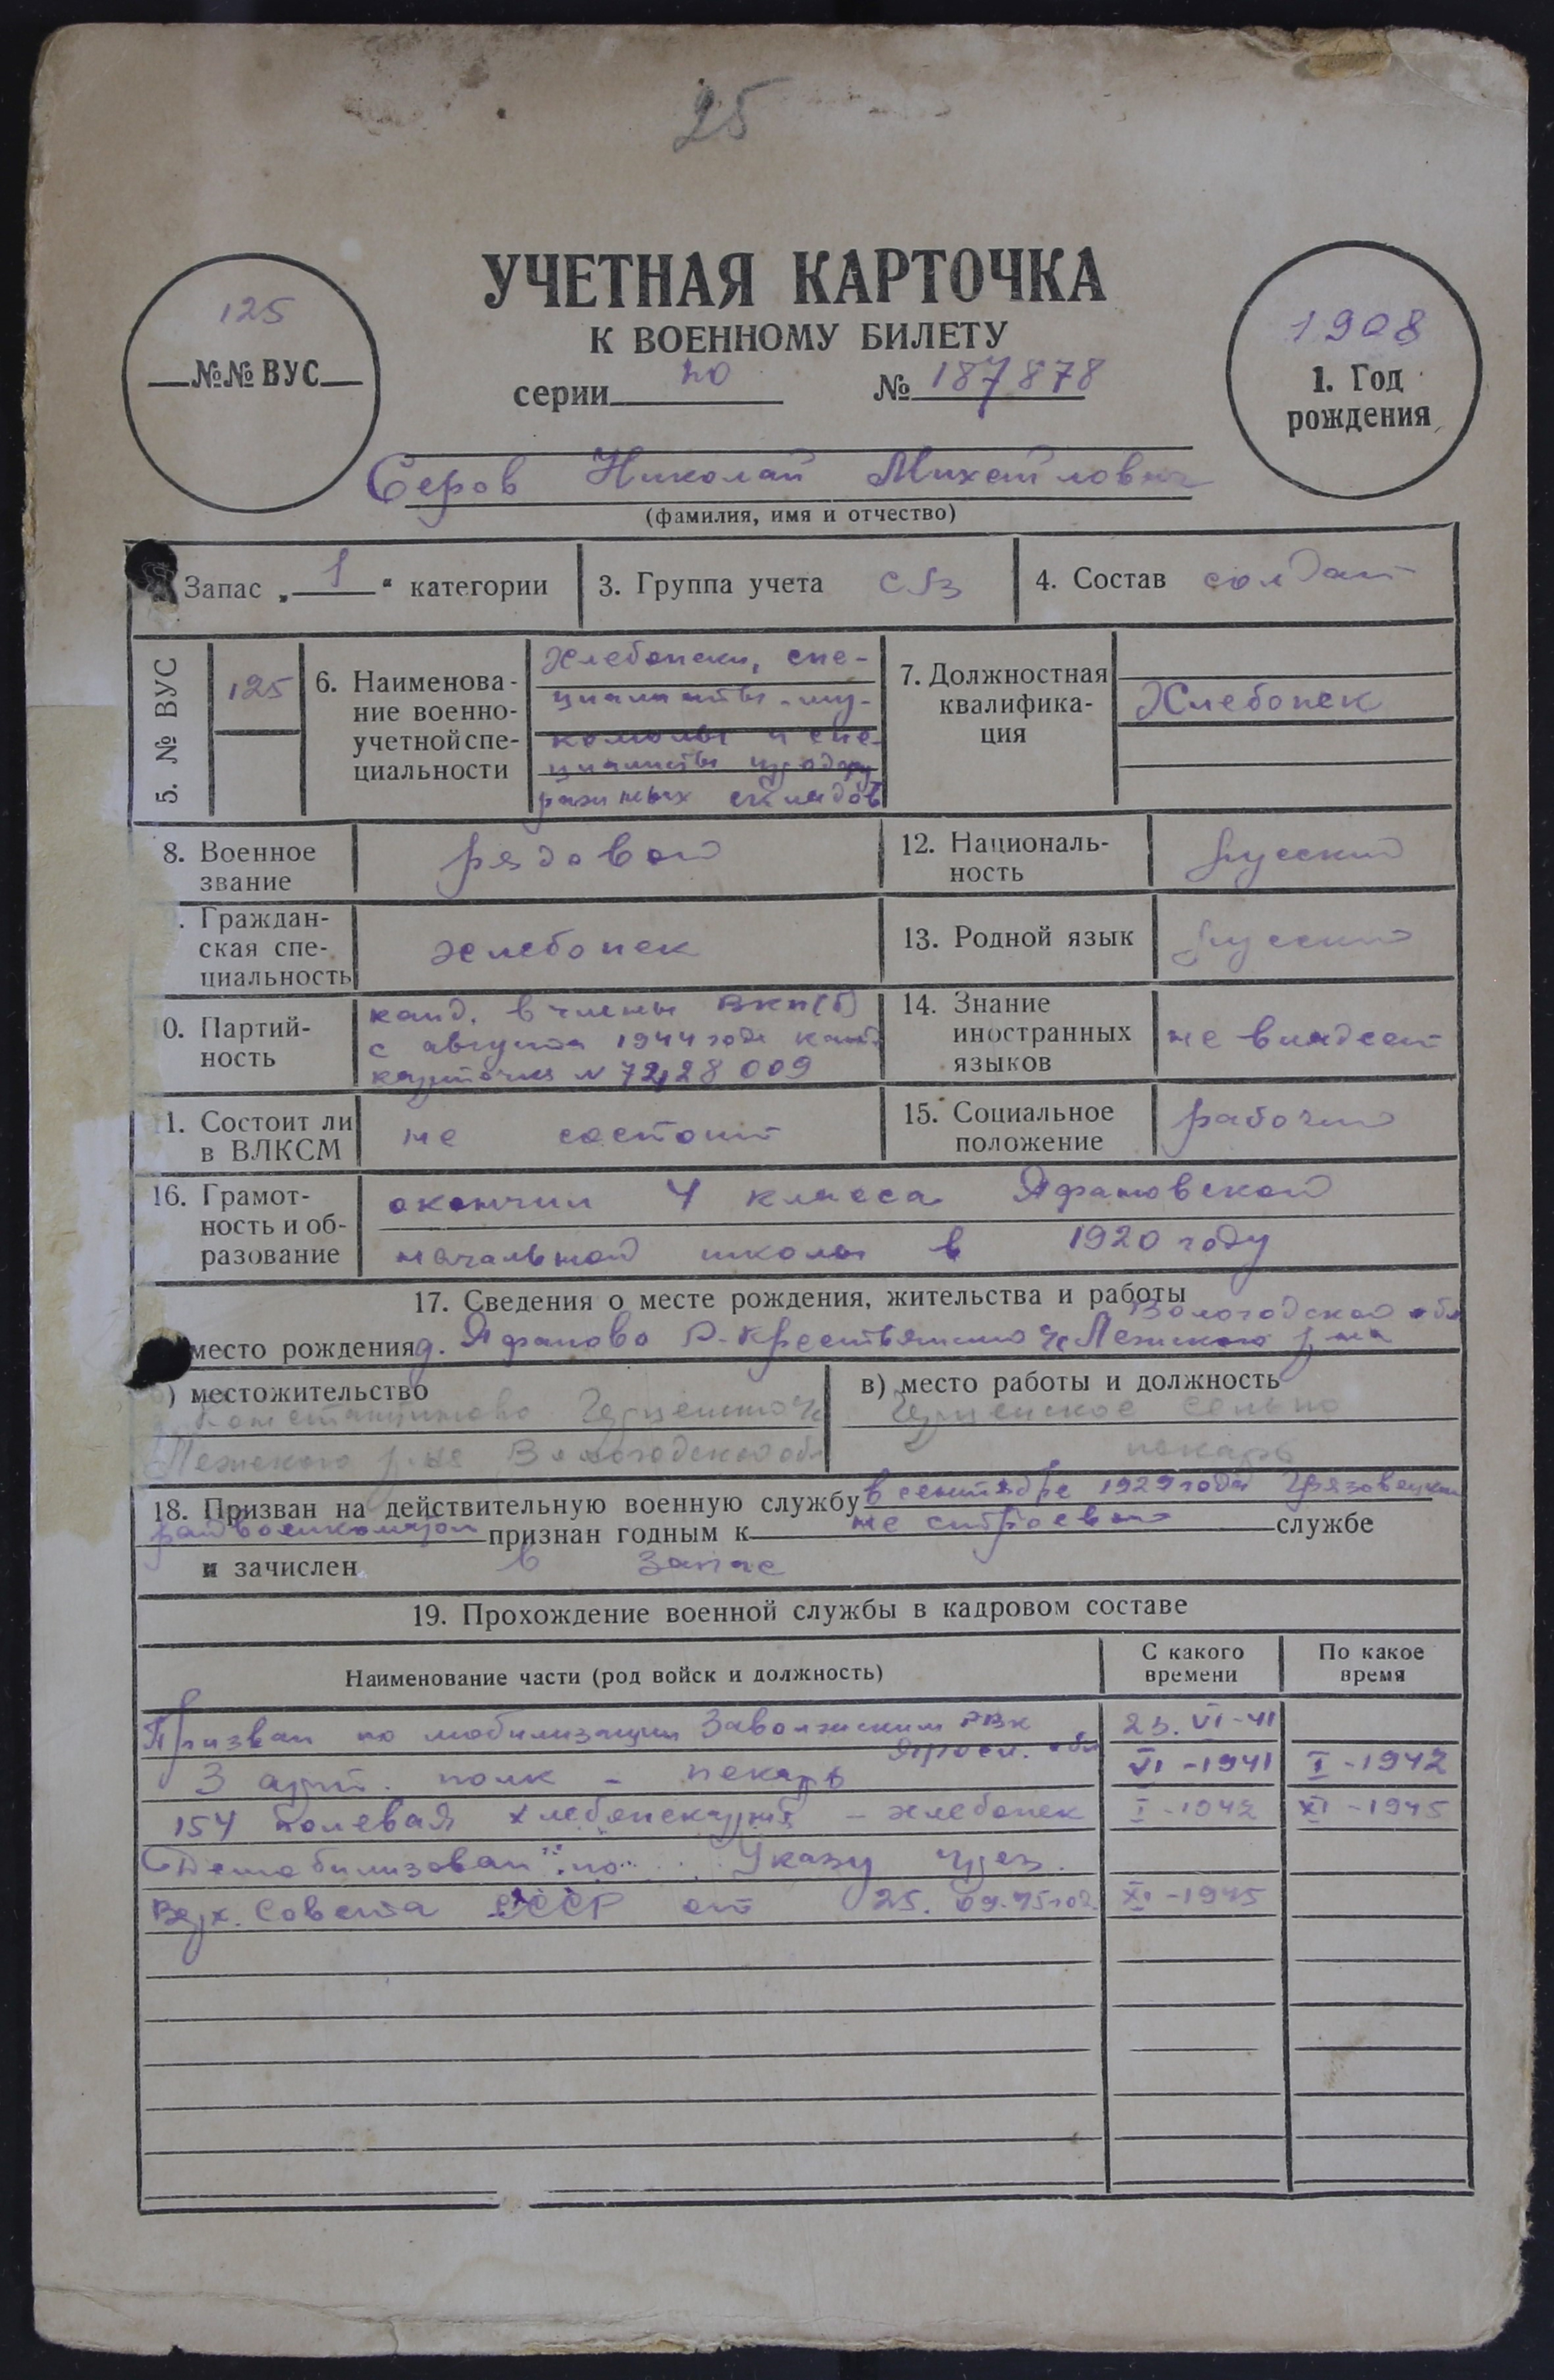 25
УЧЕТНАЯ КАРТОЧКА
К ВОЕННОМУ БИЛЕТУ
серии № 187878
125
№№ ВУС
1908
1. Год
рождения
Серов Николай Михайлович
(фамилия, имя и отчество)
Запас „ 1 “ категории
3. Группа учета
4. Состав солдат
5. № ВУС
125
6. Наименова-
ние военно-
учетной спе-
циальности
Хлебопеки, спе-
циалисты -му-
комолы и спе-
циалисты
складов
7. Должностная
квалифика-
ция
Хлебопек
8. Военное
звание
рядовой
12. Националь-
ность
русский
. Граждан-
ская спе-
циальность
хлебопек
13. Родной язык
русский
0. Партий-
ность
канд. в члены ВКП(б)
с августа 1944 года канд.
карточка № 7228009
14. Знание
иностранных
языков
не владеет
1. Состоит ли
в ВЛКСМ
не состоит
15. Социальное
положение
рабочий
16. Грамот-
ность и об-
разование
окончил 4 класса Яфановской
начальной школы в 1920 году
17. Сведения о месте рождения, жительства и работы
Вологодской обл
место рождения д. Яфаново Р-Крестьянского с/с Лежского р-на
) местожительство
Константиново с/с
Лежского р-на Вологодской обл
в) место работы и должность
сельпо
пекарь
18. Призван на действительную военную службу в сентябре 1929 года Грязовецким
райвоенкоматом признан годным к не строевой службе
и зачислен в запас
19. Прохождение военной службы в кадровом составе
Наименование части (род войск и должность)
С какого
времени
По какое
время
Призван по мобилизации Заволжским РВК 23. VI-41
Яросл. обл
3 арт. полк - пекарь VI-1941 I-1942
154 полевая хлебопекарня - хлебопек I-1942 XI-1945
Демобилизован по Указу През.
Верх. Совета СССР от 25.09.45 год. XI-1945